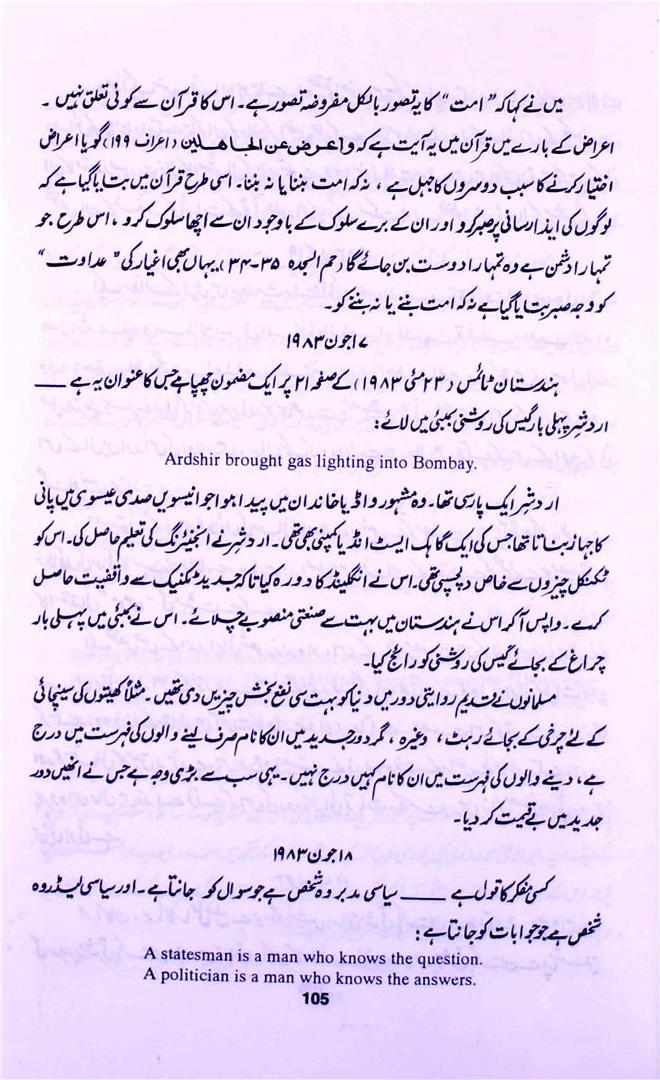 میں نے کہا کہ ”امت“ کا یہ تصور بالکل مفروضہ تصور ہے۔ اس کا قرآن سے کوئی تعلق نہیں۔
اعراض کے بارے میں قرآن میں یہ آیت ہے کہ واعرض عن الجاهلین (اعراف ۱۹۹) گویا اعراض
اختیار کرنے کا سبب دوسروں کا جہل ہے، نہ کہ امت بننا یا نہ بننا۔ اسی طرح قرآن میں بتایا گیا ہے کہ
لوگوں کی ایذا رسانی پر صبر کرو اور ان کے برے سلوک کے باوجود ان سے اچھا سلوک کرو، اس طرح جو
تمہارا دشمن ہے وہ تمہارا دوست بن جائے گا (حم السجدہ ۳۵-۳۴)۔ یہاں بھی اغیار کی ”عداوت“
کو وجہ صبر بتایا گیا ہے نہ کہ امت بننے یا نہ بننے کو۔
۱۷ جون ۱۹۸۳
ہندستان ٹائمس (۲۳ مئی ۱۹۸۳) کے صفحہ ۲۱ پر ایک مضمون چھپا ہے جس کا عنوان یہ ہے ____
اردشیر پہلی بار گیس کی روشنی بمبئی میں لائے:
Ardshir brought gas lighting into Bombay.
اردشیر ایک پارسی تھا۔ وہ مشہور واڈیا خاندان میں پیدا ہوا جو انیسویں صدی عیسوی میں پانی
کا جہاز بناتا تھا جس کی ایک گاہک ایسٹ انڈیا کمپنی بھی تھی۔ اردشیر نے انجنیئرنگ کی تعلیم حاصل کی۔ اس کو
ٹکنکل چیزوں سے خاص دلچسپی تھی۔ اس نے انگلینڈ کا دورہ کیا تاکہ جدید ٹکنیک سے واقفیت حاصل
کرے۔ واپس آکر اس نے ہندستان میں بہت سے صنعتی منصوبے چلائے۔ اس نے بمبئی میں پہلی بار
چراغ کے بجائے گیس کی روشنی کو رائج کیا۔
مسلمانوں نے قدیم روایتی دور میں دنیا کو بہت سی نفع بخش چیزیں دی تھیں۔ مثلاً کھیتوں کی سینچائی
کے لئے چرخی کے بجائے رہٹ، وغیرہ، مگر دور جدید میں ان کا نام صرف لینے والوں کی فہرست میں درج
ہے، دینے والوں کی فہرست میں ان کا نام کہیں درج نہیں۔ یہی سب سے بڑی وجہ ہے جس نے انھیں دور
جدید میں بے قیمت کر دیا۔
۱۸ جون ۱۹۸۳
کسی مفکر کا قول ہے ____ سیاسی مدبر وہ شخص ہے جو سوال کو جانتا ہے۔ اور سیاسی لیڈر وہ
شخص ہے جو جوابات کو جانتا ہے:
A statesman is a man who knows the question.
A politician is a man who knows the answers.
105